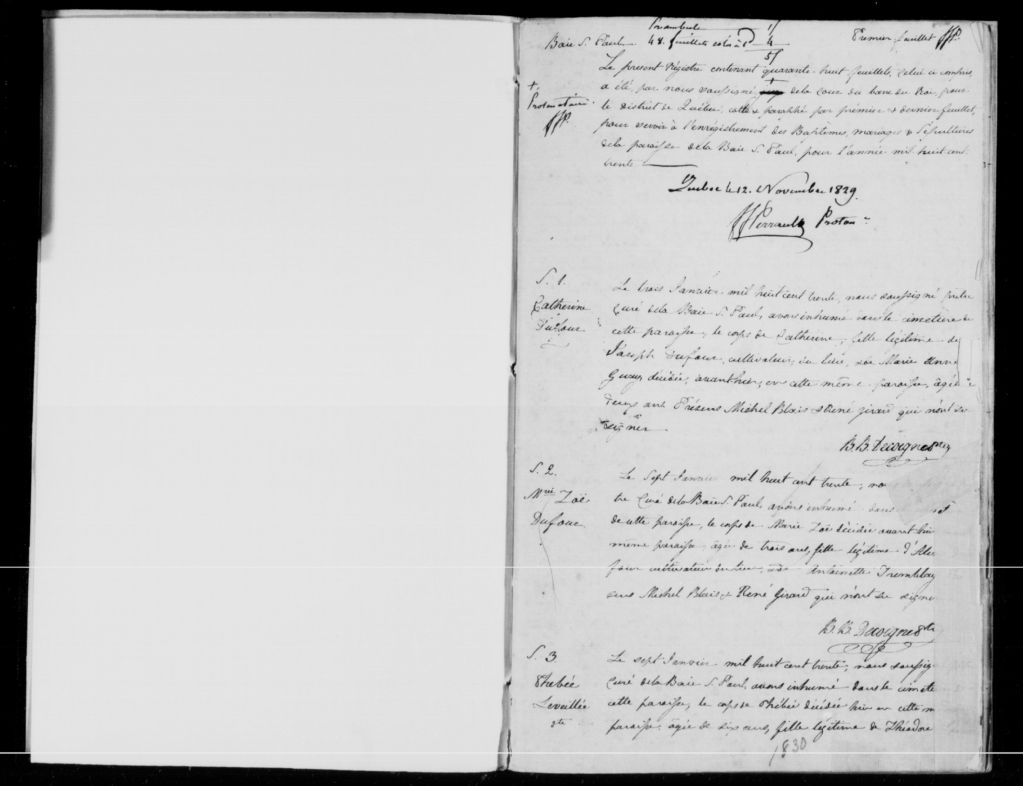 Preambule 1/
Baie S. Paul 48. feuillets cotés à 4
Premier feuillet
5/
Le présent Régistre contenant quarante-huit feuillets, celui ci compris,
a été, par nous soussigné, de la Cour du banc du Roi, pour
+
Protonotaire
le district de Québec, coté & paraphé par prémier & dernier feuillet,
pour servir à l'enrégistrement des Baptêmes, mariages & Sépultures
de la paroisse de la Baie S. Paul, pour l'année mil huit cent
trente
Quebec le 12. Novembre 1829.
Perrault Proton.
S. 1.
Catherine
Dufour
Le trois Janvier mil huit cent trente, nous soussigné prêtre
curé de la Baie S. Paul, avons inhumé dans le cimetière de
cette paroisse, le corps de Catherine, fille légitime de
Joseph Dufour, cultivateur, du lieu, & de Marie Anne
décédée, avant hier, en cette même paroisse, agée
deux ans. Présens Michel Blais & René Girard qui n'ont su
signer
S. 2.
Mrie Zoë
Dufour
Le Sept Janvier mil huit cent trente, no
tre Curé de la Baie S. Paul, avons inhumé dans
de cette paroisse, le corps de Marie Zoë décédée avant hier
même paroisse, agée de trois ans, fille légitime d'
four cultivateur du lieu, & de Antoinette Tremblay
sens Michel Blais & René Girard qui n'ont su signe
S. 3
Phebée
Leveillée
Le sept Janvier mil huit cent trente, nous soussig
Curé de la Baie S. Paul, avons inhumé dans le cimete
cette paroisse, le corps de Phébée décédée hier en cette m
paroisse, agée de six ans, fille légitime de Théodore
1830